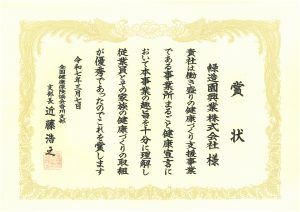 賞状
軽造園興業株式会社 様
貴社は働き盛りの健康づくり支援事業
である事業所まるごと健康宣言に
おいて本事業の趣旨を十分に理解し
従業員とその家族の健康づくりの取組
が優秀であったのでこれを賞します
令和七年三月七日
全国健康保険協会香川支部
支部長 近藤浩之